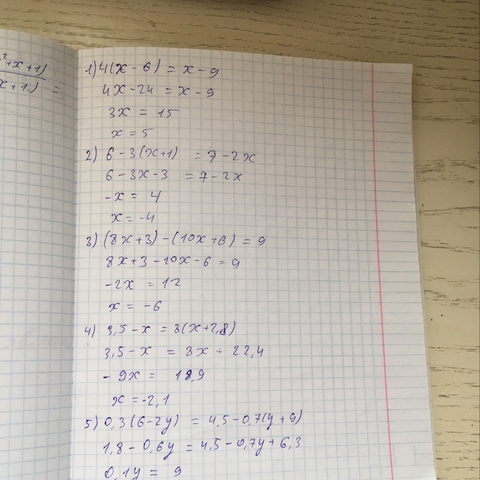 ²+x+1)
x+1.) =
1) 4(x - 6) = x - 9
4x - 24 = x - 9
3x = 15
x = 5
2) 6 - 3(x+1) = 7 - 2x
6 - 3x - 3 = 7 - 2x
-x = 4
x = -4
3) (8x+3) - (10x+6) = 9
8x+3 - 10x - 6 = 9
-2x = 12
x = -6
4) 3,5 - x = 8(x+2,8)
3,5 - x = 8x + 22,4
- 9x = 18,9
x = -2,1
5) 0,3(6-2y) = 4,5 - 0,7(y+9)
1,8 - 0,6y = 4,5 - 0,7y + 6,3
0,1y = 9